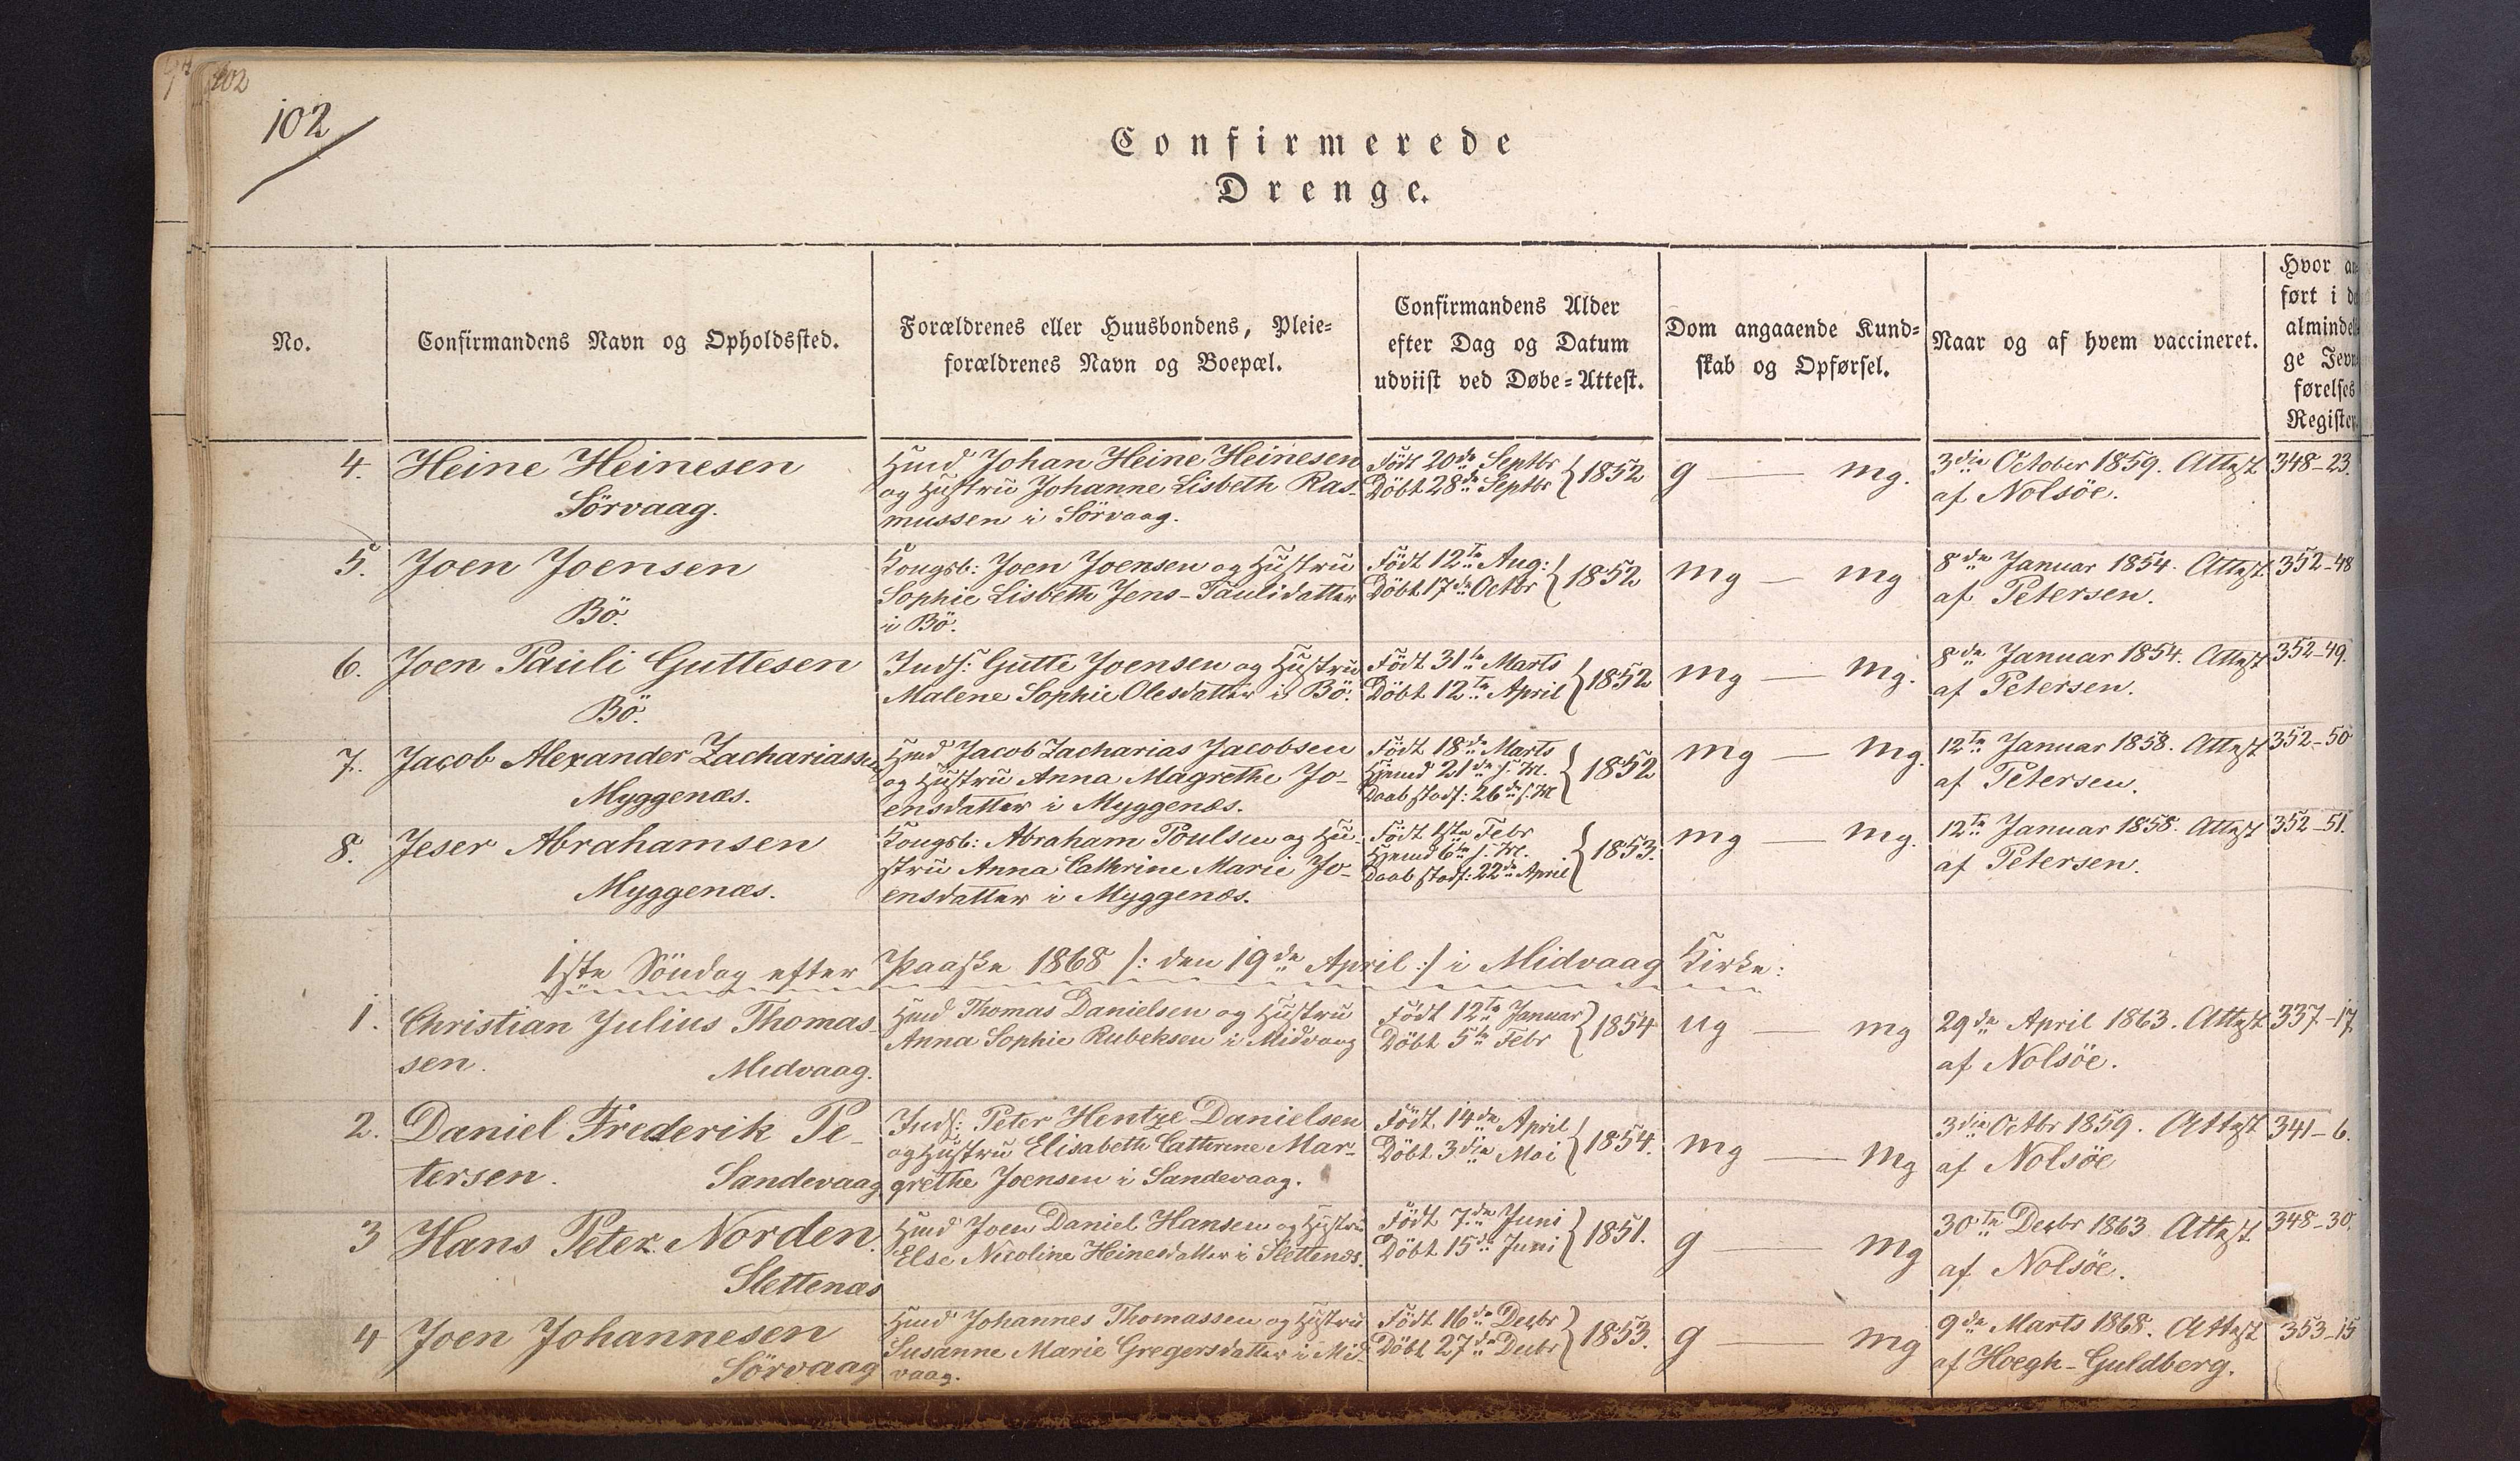 102
102
Confirmerede
Drenge.
No.
Confirmandens Navn og Opholdssted.
Forældrenes eller Huusbondens, Pleie-
forældrenes Navn og Boepæl.
Confirmandens Alder
efter Dag og Datum
udviist ved Døbe-Attest.
Dom angaaende Kund-
skab og Opførsel.
Naar og af hvem vaccineret.
Hvor an-
ført i de
almindel-
ge Jevn-
førelses
Register.
4. Heine Heinesen
Sörvaag.
Hmd Johan Heine Heinesen
og Hustru Johanne Lisbeth Ras-
mussen i Sörvaag.
Födt 20de Septbr
Döbt 28de Septbr } 1852
g — mg.
3die October 1859. Attest
af Nolsöe.
348-23.
5. Joen Joensen
Bö.
Kongsb: Joen Joensen og Hustru
Sophie Lisbeth Jens-Paulidatter
i Bö.
Födt 12te Aug:
Döbt 17de Octbr } 1852
mg — mg
8de Januar 1854. Attest
af Petersen.
352-48
6. Joen Pauli Guttesen
Bö.
Inds: Gutte Joensen og Hustru
Malene Sophie Olesdatter i Bö.
Födt 31te Marts
Döbt 12te April } 1852
mg — mg.
8de Januar 1854. Attest
af Petersen.
352-49.
7. Jacob Alexander Zachariassen
Myggenæs.
Hmd Jacob Zacharias Jacobsen
og Hustru Anna Magrethe Jo-
ensdatter i Myggenæs.
Födt 18de Marts
Hjemd 21de s. M.
Daab stadf: 26de s. M } 1852
mg — mg.
12te Januar 1858. Attest
af Petersen.
352-50
8. Jeser Abrahamsen
Myggenæs.
Kongsb: Abraham Poulsen og Hu-
stru Anna Cathrine Marie Jo-
ensdatter i Myggenæs.
Födt 1ste Febr
Hjemd 6te s. M.
Daab stadf: 22de April } 1853.
mg — mg.
12te Januar 1858. Attest
af Petersen.
352-51.
1ste Söndag efter Paaske 1868 /: den 19de April :/ i Midvaag Kirke:
1. Christian Julius Thomas-
sen. Midvaag.
Hmd Thomas Danielsen og Hustru
Anna Sophie Rubeksen i Midvaag
Födt 12te Januar
Döbt 5te Febr } 1854
ug — mg
29de April 1863. Attest
af Nolsöe.
337-17.
2. Daniel Frederik Pe-
tersen. Sandevaag
Inds: Peter Hentze Danielsen
og Hustru Elisabeth Cathrine Mar-
grethe Joensen i Sandevaag.
Födt 14de April
Döbt 3die Mai } 1854.
mg — mg
3die Octbr 1859. Attest
af Nolsöe
341-6.
3 Hans Peter Norden.
Slettenæs
Hmd Joen Daniel Hansen og Hustru
Else Nicoline Heinesdatter i Slettenæs.
Födt 7de Juni
Döbt 15de Juni } 1851.
g — mg
30te Decbr 1863 Attest
af Nolsöe.
348-30.
4 Joen Johannesen
Sörvaag
Hmd Johannes Thomassen og Hustru
Susanne Marie Gregersdatter i Mid-
vaag.
Födt 16de Decbr
Döbt 27de Decbr } 1853.
g — mg
9de Marts 1868. Attest
af Hoegh-Guldberg.
353-15